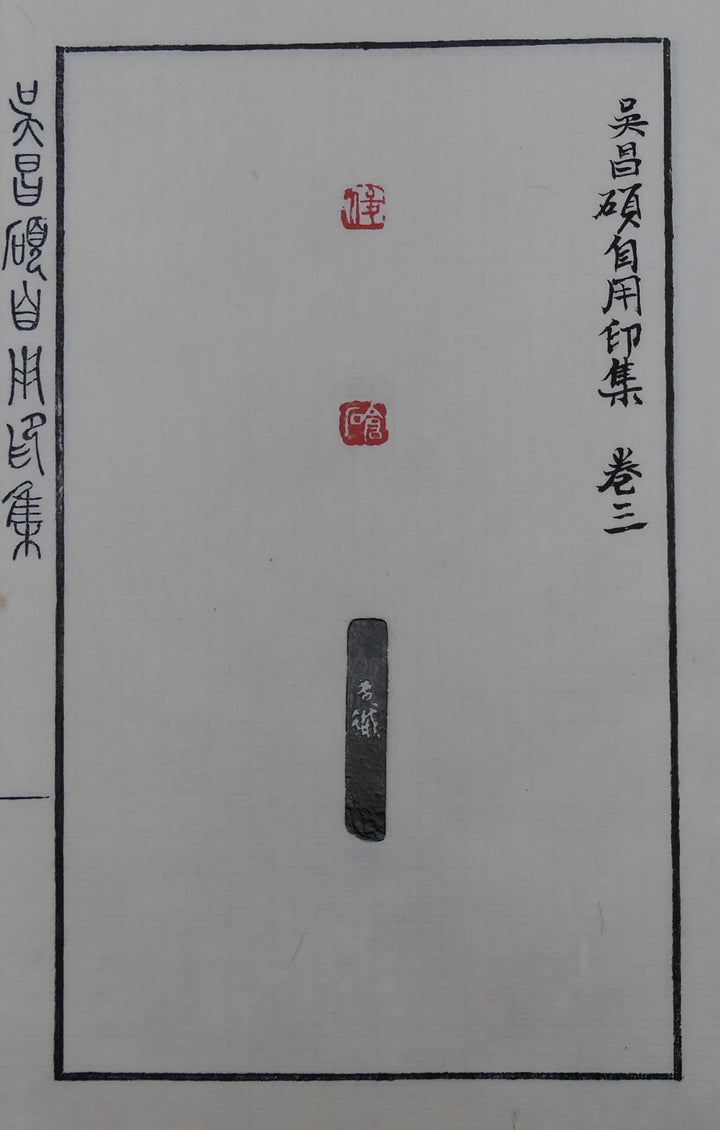 吳昌碩自用印集 卷三
倉
碩
老鐵
吳昌碩自用印集